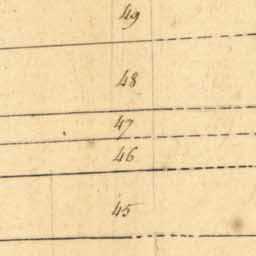 49
48
47
46
45